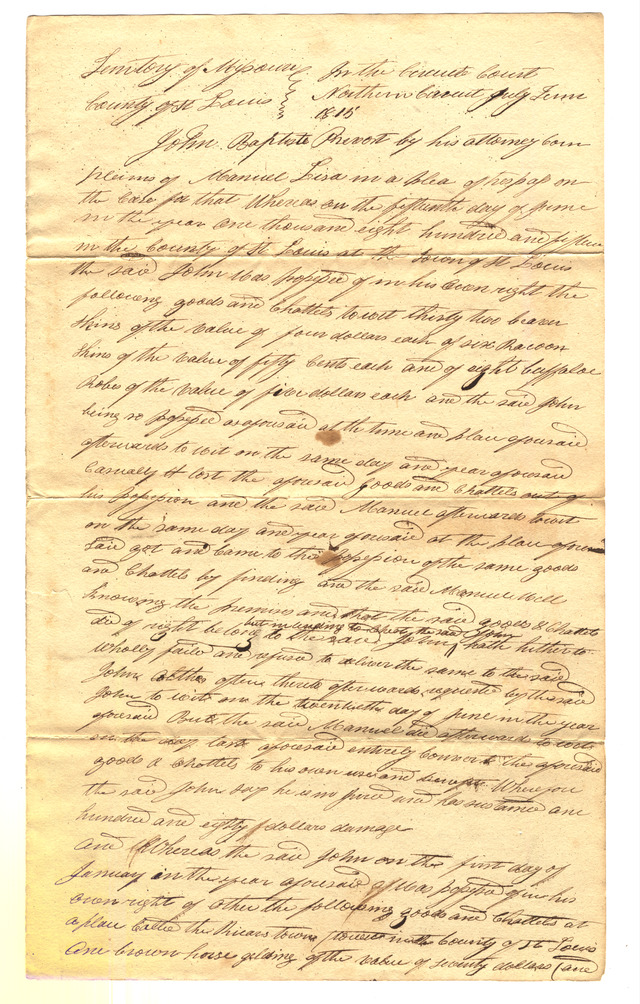 Territory of Missouri } In the Circuit Court
County of St Louis } Northern Circuit July Term
1815
John Baptiste Prevost by his attorney com
plains of Manuel Lisa in a plea of trespass on
the Case for that Whereas on the fifteenth day of June
in the year one thousand eight hundred and fifteen
in the County of St Louis at the Town of St Louis
the said John Was possessed of in his own right the
following goods and Chattels to wit thirty two beaver
skins of the value of four dollars each of six Racoon
skins of the value of fifty Cents each and of eight buffaloe
Robes of the value of five dollars each and the said John
being so possessed as aforesaid at the time and place aforesaid
afterwards to wit on the same day and year aforesaid
Casually lost the aforesaid goods and Chattels out of
his possession and the said Manuel afterwards to wit
on the same day and year aforesaid at the place afore
said got and Came to the possession of the same goods
and Chattels by finding and the said Manuel Well
knowing the premises and that the said goods & Chattels
did of right belong to the said John but intending to the said John hath hitherto
wholly failed and refused to deliver the same to the said
John altho often thereto afterwards requested by the said
John to wit on the twentieth day of June in the year
aforesaid But the said Manuel did afterwards to wit
on the day last aforesaid entirely Convert the aforesaid
goods & Chattels to his own use and benefit Whereupon
the said John Say he is injured and has sustained one
hundred and eighty dollars damage
And Whereas the said John on the first day of
January in the year aforesaid Was possessed of in his
own right of other the following goods and Chattels at
a place Called the Ricaras towns to wit in the County of St Louis
One brown horse gelding of the value of seventy dollars (one